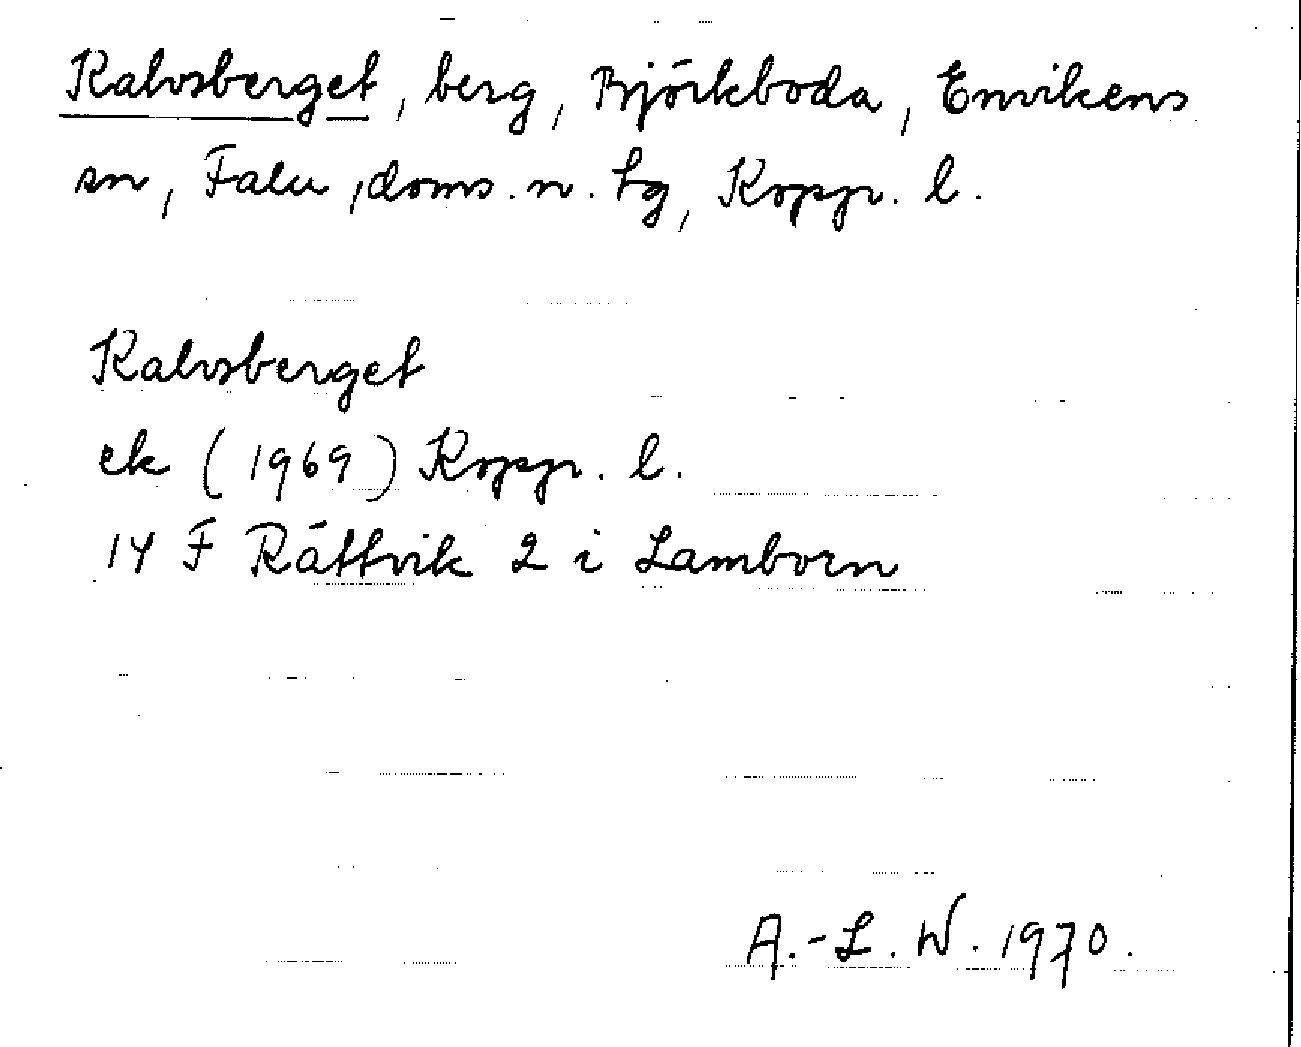 Kalvsberget, berg, Björkboda, Envikens
sn, Falu, doms. n. tg, Kopp. l.
Kalvsberget
ek (1969) Kopp. l.
14 F Rättvik 2 i Lamborn
A.-L. W. 1970.